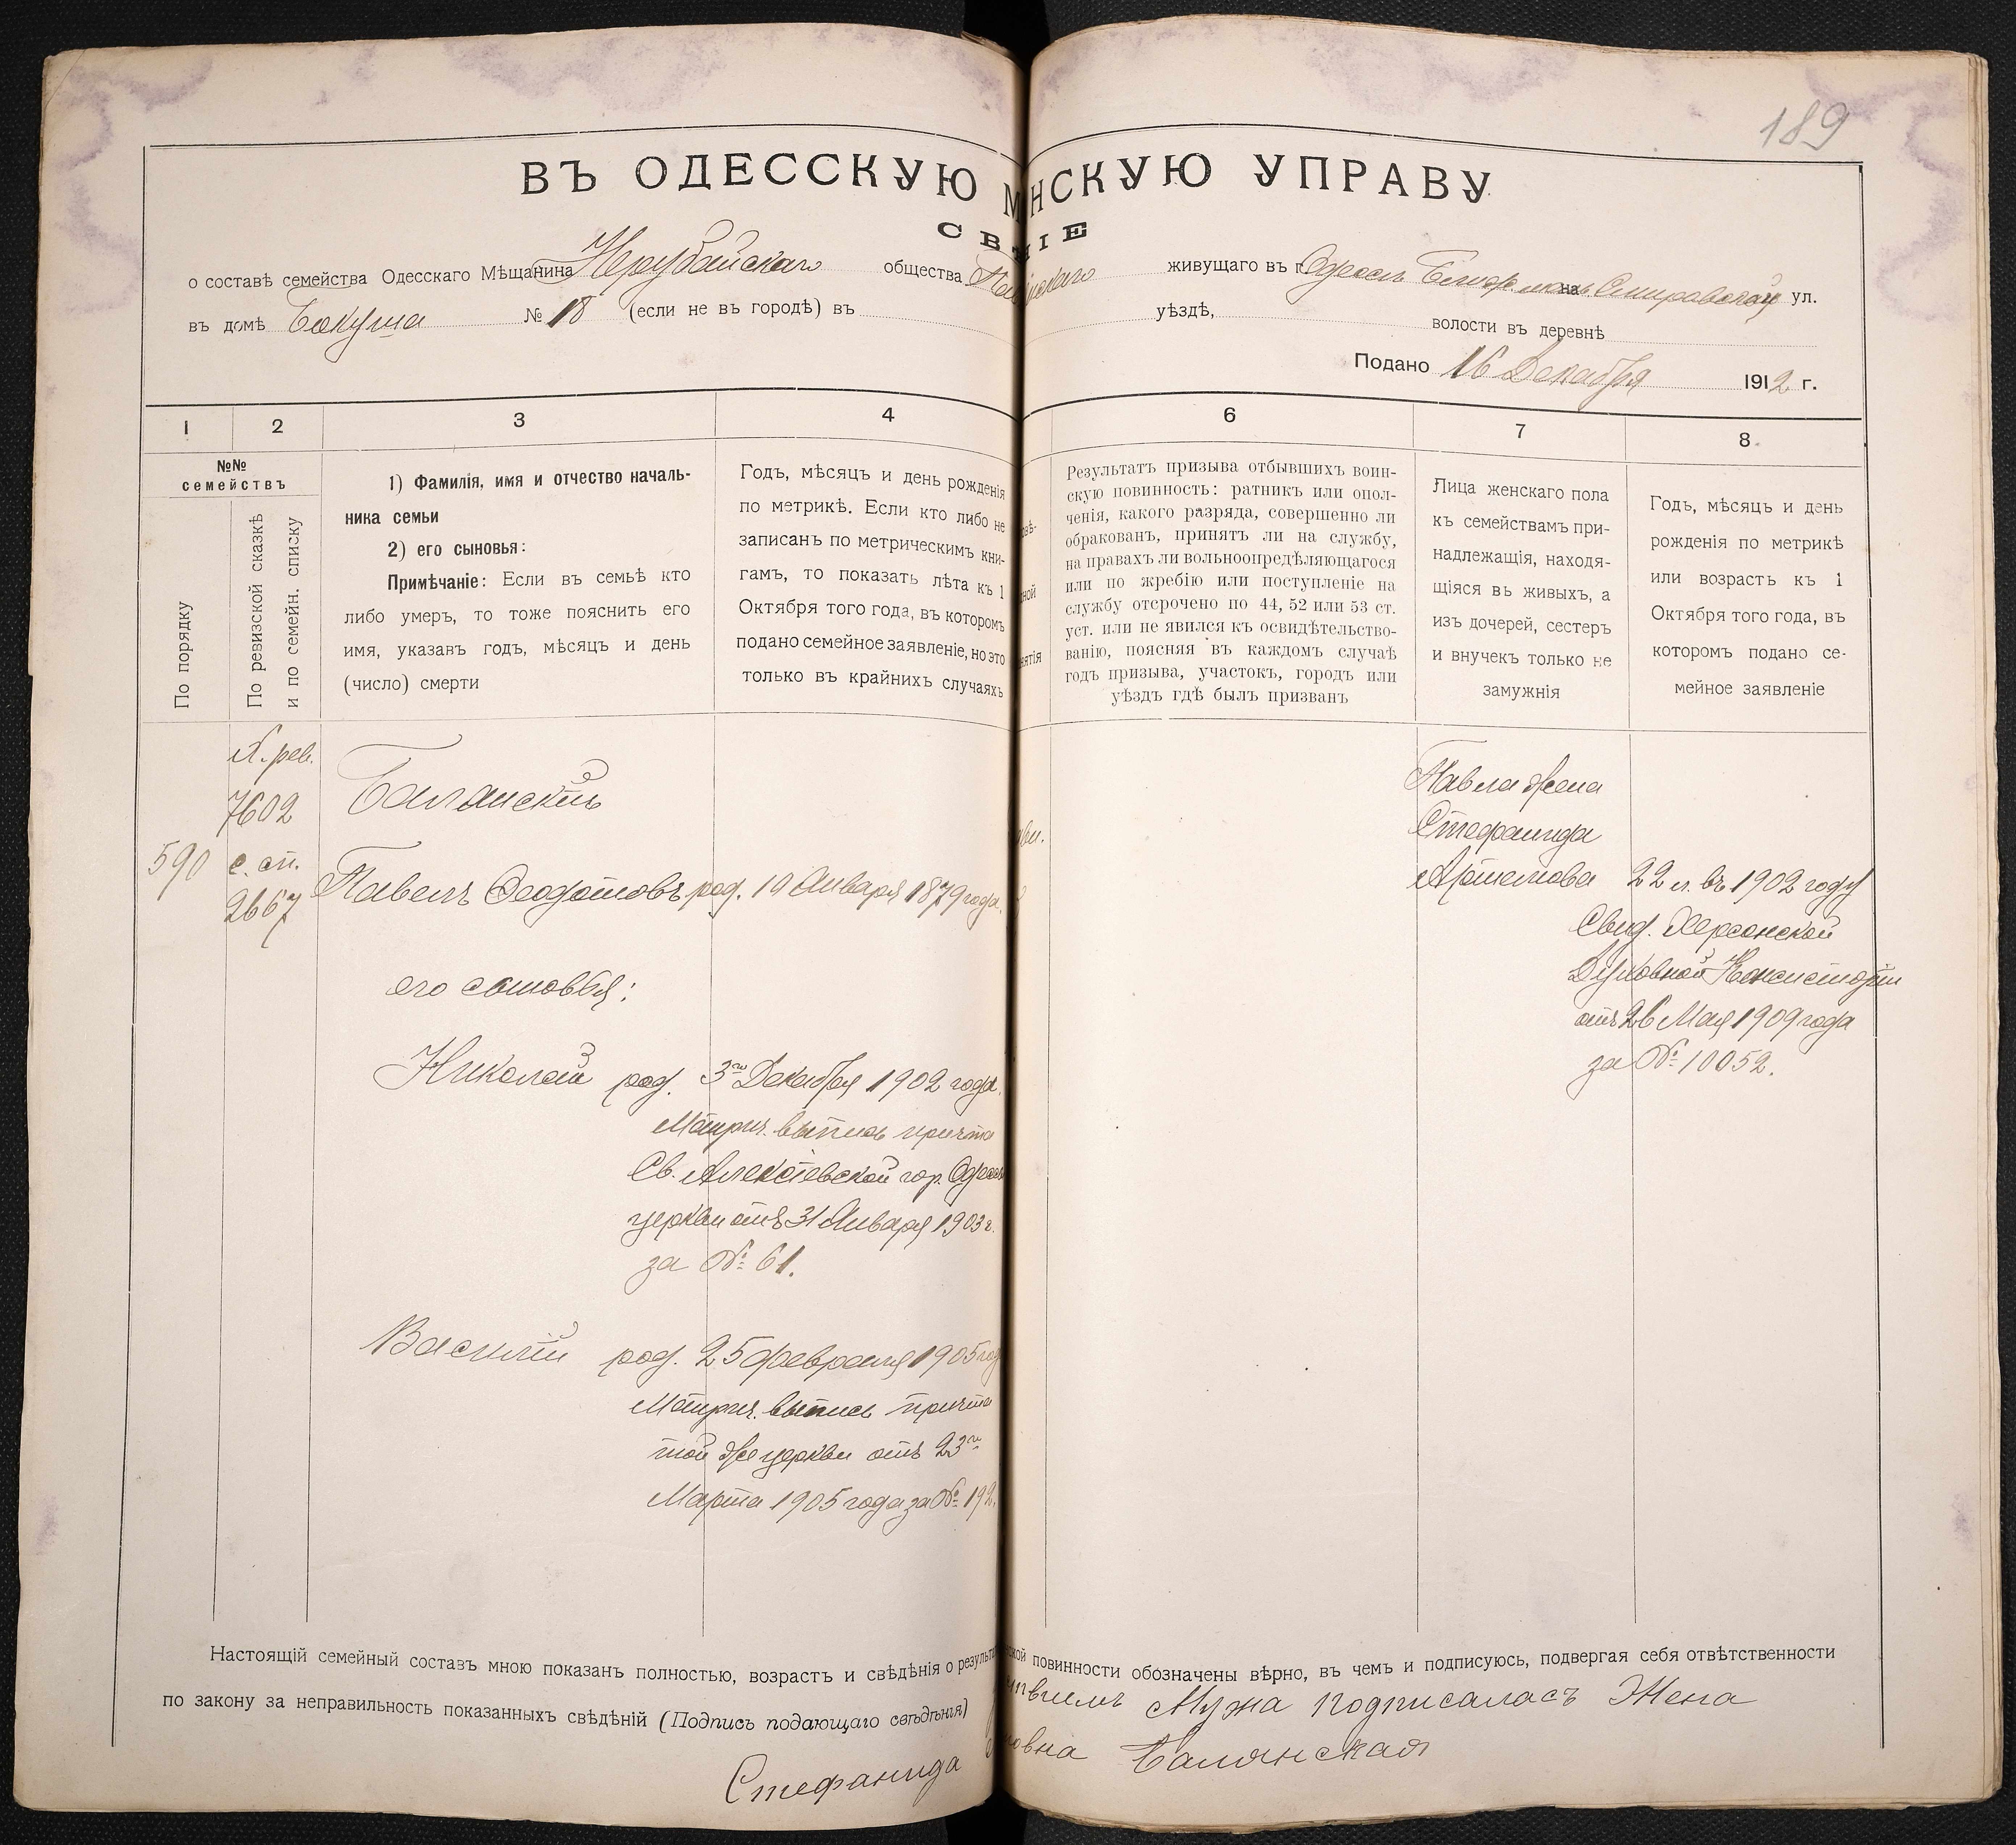 189
ВЪ ОДЕССКУЮ М НСКУЮ УПРАВУ
СВ НІЕ
о составѣ семейства Одесскаго Мѣщанина Нерубайскаго общества живущаго въ г. Одессѣ на ул.
въ домѣ № 18 (если не въ городѣ) въ уѣздѣ, волости въ деревнѣ
Подано 16 Декабря 1912 г.
1 2 3 4 6 7 8
№№ семействъ
По порядку
По ревизской сказкѣ
и по семейн. списку
1) Фамилія, имя и отчество началь-
ника семьи
2) его сыновья:
Примѣчаніе: Если въ семьѣ кто
либо умеръ, то тоже пояснить его
имя, указавъ годъ, мѣсяцъ и день
(число) смерти
Годъ, мѣсяцъ и день рожденія
по метрикѣ. Если кто либо не
записанъ по метрическимъ кни-
гамъ, то показать лѣта къ 1
Октября того года, въ которомъ
подано семейное заявленіе, но это
только въ крайнихъ случаяхъ
Результатъ призыва отбывшихъ воин-
скую повинность: ратникъ или опол-
ченія, какого разряда, совершенно ли
обракованъ, принятъ ли на службу,
на правахъ ли вольноопредѣляющагося
или по жребію или поступленіе на
службу отсрочено по 44, 52 или 53 ст.
уст. или не явился къ освидѣтельство-
ванію, поясняя въ каждомъ случаѣ
годъ призыва, участокъ, городъ или
уѣздъ гдѣ былъ призванъ
Лица женскаго пола
къ семействамъ при-
надлежащія, находя-
щіяся въ живыхъ, а
изъ дочерей, сестеръ
и внучекъ только не
замужнія
Годъ, мѣсяцъ и день
рожденія по метрикѣ
или возрастъ къ 1
Октября того года, въ
которомъ подано се-
мейное заявленіе
590
X. рев.
7602
с. сп.
2667
Балянскій
Павелъ Феодотовъ род. 19 Января 1879 года.
его сыновья:
Николай род. 3го Декабря 1902 года.
Метрич. выпись причта
Св. Алексіевской гор. Одессы
церкви отъ 31 Января 1903 г.
за № 61.
Василій род. 25 февраля 1905 год
Метрич. выпись причта
той же церкви отъ 23го
Марта 1905 года за № 192.
Павла жена
Стефанида
Артемова 22 л. въ 1902 году
Свид. Херсонской
Духовной Консисторіи
отъ 26 Мая 1909 года
за № 10052.
Настоящій семейный составъ мною показанъ полностью, возрастъ и свѣдѣнія о результа ской повинности обозначены вѣрно, въ чемъ и подписуюсь, подвергая себя отвѣтственности
по закону за неправильность показанныхъ свѣдѣній (Подпись подающаго свѣдѣнія) Мужа подписалась Жена
Стефанида овна Балянская